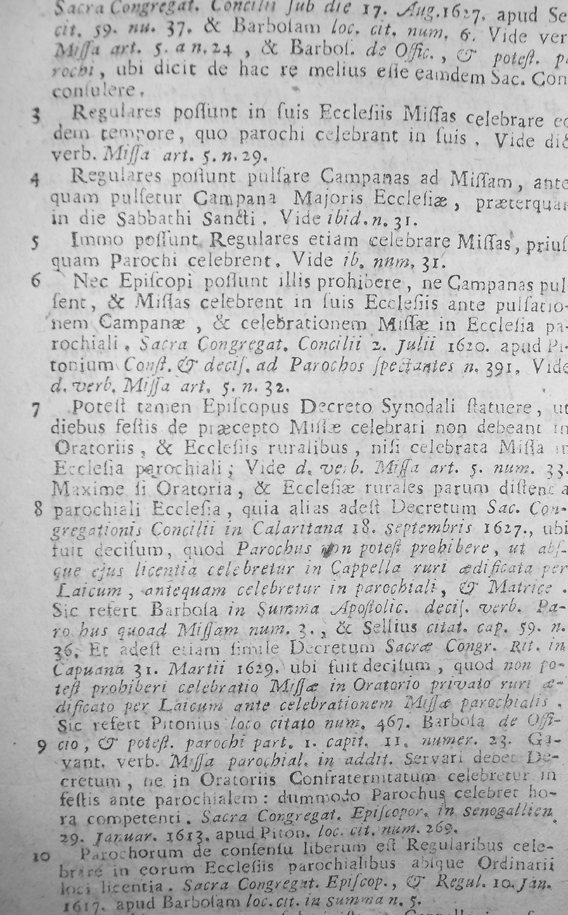 Sacra Congregat. Concilii sub die 17. Aug. 1627. apud Se
cit. 59. nu. 37. & Barbosam loc. cit. num. 6. Vide ver
Missa art. 5. a n. 24, & Barbos. de Offic., & potest. pa
rochi, ubi dicit de hac re melius esse eamdem Sac. Con
consulere.
3 Regulares possunt in suis Ecclesiis Missas celebrare eo
dem tempore, quo parochi celebrant in suis. Vide dić
verb. Missa art. 5. n. 29.
4 Regulares possunt pulsare Campanas ad Missam, ante
quam pulsetur Campana Majoris Ecclesiæ, præterquam
in die Sabbathi Sancti. Vide ibid. n. 31.
5 Immo possunt Regulares etiam celebrare Missas, prius
quam Parochi celebrent. Vide ib. num. 31.
6 Nec Episcopi possunt illis prohibere, ne Campanas pul
sent, & Missas celebrent in suis Ecclesiis ante pulsatio-
nem Campanæ, & celebrationem Missæ in Ecclesia pa-
rochiali. Sacra Congregat. Concilii 2. Julii 1620. apud Pi-
tonium Const. & decis. ad Parochos spectantes n. 391. Vide
d. verb. Missa art. 5. n. 32.
7 Potest tamen Episcopus Decreto Synodali statuere, ut
diebus festis de præcepto Missæ celebrari non debeant in
Oratoriis, & Ecclesiis ruralibus, nisi celebrata Missa in
Ecclesia parochiali; Vide d. verb. Missa art. 5. num. 33.
Maxime si Oratoria, & Ecclesiæ rurales parum distent a
8 parochiali Ecclesia, quia alias adest Decretum Sac. Con-
gregationis Concilii in Calaritana 18. Septembris 1627., ubi
fuit decisum, quod Parochus non potest prohibere, ut abs-
que ejus licentia celebretur in Cappella ruri ædificata per
Laicum, antequam celebretur in parochiali, & Matrice.
Sic refert Barbosa in Summa Apostolic. decis. verb. Pa-
rochus quoad Missam num. 3., & Sellius citat. cap. 59. n.
36. Et adest etiam simile Decretum Sacræ Congr. Rit. in
Capuana 31. Martii 1629. ubi fuit decisum, quod non po-
test prohiberi celebratio Missæ in Oratorio privato ruri æ-
dificato per Laicum ante celebrationem Missæ parochialis.
Sic refert Pitonius loco citato num. 467. Barbosa de Offi-
9 cio, & potest. parochi part. 1. capit. 11. numer. 23. Ga-
vant. verb. Missa parochial. in addit. Servari debet De-
cretum, ne in Oratoriis Confraternitatum celebretur in
festis ante parochialem: dummodo Parochus celebret ho-
ra competenti. Sacra Congregat. Episcopor. in senogallien
29. Januar. 1613. apud Piton. loc. cit. num. 269.
10 Parochorum de consensu liberum est Regularibus cele-
brare in eorum Ecclesiis parochialibus absque Ordinarii
loci licentia. Sacra Congregat. Episcop., & Regul. 10. Jan.
1617. apud Barbosam loc. cit. in summa n. 5.